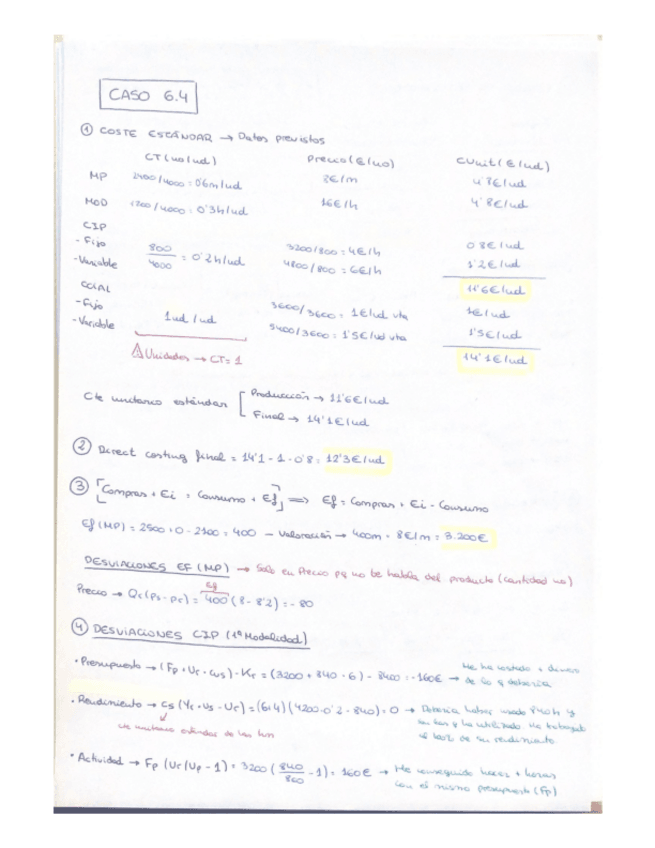 CASO 6.4
① COSTE ESTÁNDAR → Datos previstos
CT (uo/ud) Precio (€/uo) CUnit (€/ud)
MP 2400/4000 = 0'6m/ud 8€/m 4'8€/ud
MOD 1200/4000 = 0'3h/ud 16€/h 4'8€/ud
CIP
- Fijo 3200/800 = 4€/h 0'8€/ud
- Variable 800/4000 = 0'2h/ud 4800/800 = 6€/h 1'2€/ud
11'6€/ud
CCIAL
- Fijo 3600/3600 = 1€/ud vta 1€/ud
- Variable 1ud/ud 5400/3600 = 1'5€/ud vta 1'5€/ud
⚠ Unidades → CT = 1 14'1€/ud
Cte unitario estándar [ Producción → 11'6€/ud
Final → 14'1€/ud
② Direct costing final = 14'1 - 1 - 0'8 = 12'3€/ud
③ [Compras + Ei = Consumo + Ef] => Ef = Compras + Ei - Consumo
Ef (MP) = 2500 + 0 - 2100 = 400 - Valoración → 400m · 8€/m = 3.200€
DESVIACIONES EF (MP) → Solo en Precio pq no te habla del producto (cantidad no)
Ef
Precio → Qr (Ps - Pr) = 400 (8 - 8'2) = - 80
④ DESVIACIONES CIP (1ª Modalidad)
· Presupuesto → (Fp + Ur · cvs) - Kr = (3200 + 840 · 6) - 8400 = - 160€ → Me ha costado + dinero
de lo q debería
· Rendimiento → cs (Yr · us - Ur) = (6+4) (4200 · 0'2 - 840) = 0 → Debería haber usado 840h y
cte unitario estándar de las h/m
las h q ha utilizado. Ha trabajado
al 100% de su rendimiento
· Actividad → Fp (Ur/Up - 1) = 3200 (840/800 - 1) = 160€ → He conseguido hacer + horas
con el mismo presupuesto (Fp)